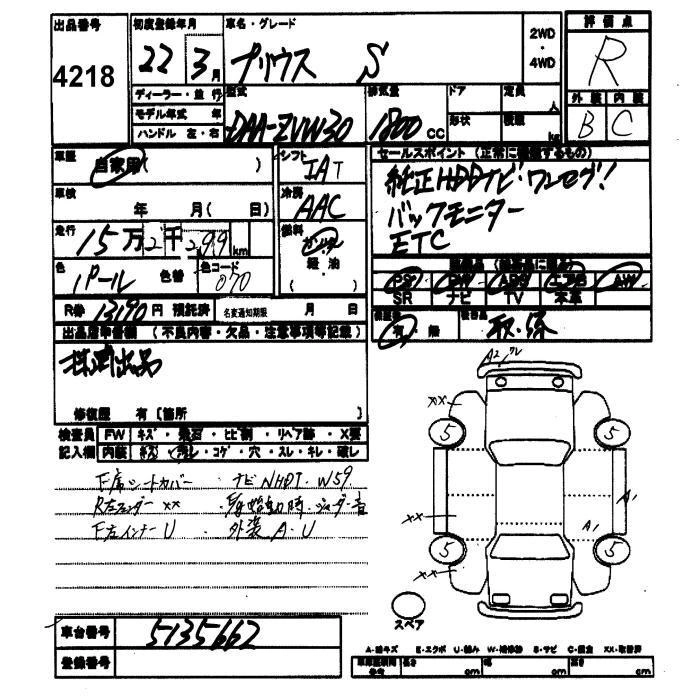 出品番号
4218
初度登録年月
22年 3月
車名・グレード
プリウス S
2WD
・
4WD
評価点
R
外装 内装
B C
ディーラー・並行
モデル年式 年
ハンドル 左・右
型式
DAA-ZVW30
排気量
1800 CC
ドア
形状
定員 人
積載 kg
車歴
自家用( )
車検
年 月( 日)
走行
15万2千299 km
色
パール
色替
色コード
070
シフト
IAT
冷房
AAC
燃料
ガソリン
軽・油
( )
セールスポイント (正常に機能するもの)
純正HDDナビ!ワンセグ!
バックモニター
ETC
PS PW ABS エアB AW
SR ナビ TV 本革
R券 13190円 預託済
名変通知期限 月 日
保証書
有 無
後日品
取・保
出品店申告欄 (不良内容・欠品・注意事項等記載)
検測出品
修復歴 有 [箇所 ]
検査員
記入欄
FW キズ・飛石・ヒビ割・リペア跡・X要
内装 キズ・汚レ・コゲ・穴・スレ・キレ・破レ
F席シートカバー ナビNHDT-W59
R左フェンダー××
F左インナーU 外装A・U
A2 ワレ
××
5
5
××
A1
A1
5
5
××
スペア
車台番号
5135662
登録番号
A-線キズ E-エクボ U-凹み W-補修跡 S-サビ C-腐食 XX-取替済
長さ cm 幅 cm 高さ cm